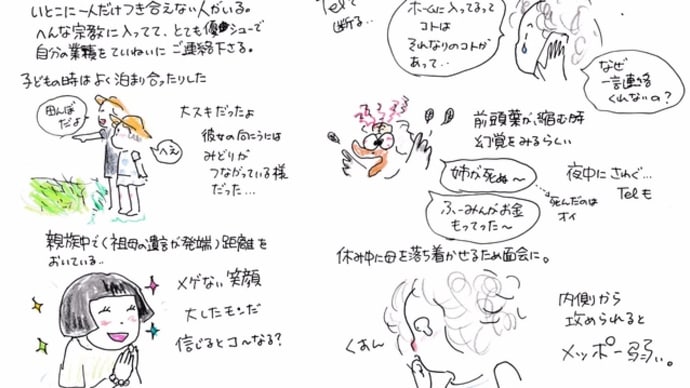 いとこに一人だけつき合えない人がいる。
へんな宗教に入ってて、とても優シューで
自分の業積をていねいに ご連絡下さる。
子どもの時はよく泊まり合ったりした
田んぼ
だよ
へえ
大スキだったよ
彼女の向こうには
みどりが
つながっている様
だった…
親族中で(祖母の遺言が発端)距離を
おいている..
メゲない笑顔
大したモンだ
信じるとコ〜なる?
Telで
断る..
ホームに入ってるって
コトは
それなりのコトが
あって..
なぜ
一言連絡
くれないの?
前頭葉が縮む時
幻覚をみるらしい
姉が死ぬ〜
ふーみんがお金
もってった〜
夜中にさわぐ…
Telも
死んだのは
オイ
休み中に母を落ち着かせるため面会に。
くぁん
内側から
攻められると
メッポー弱い。